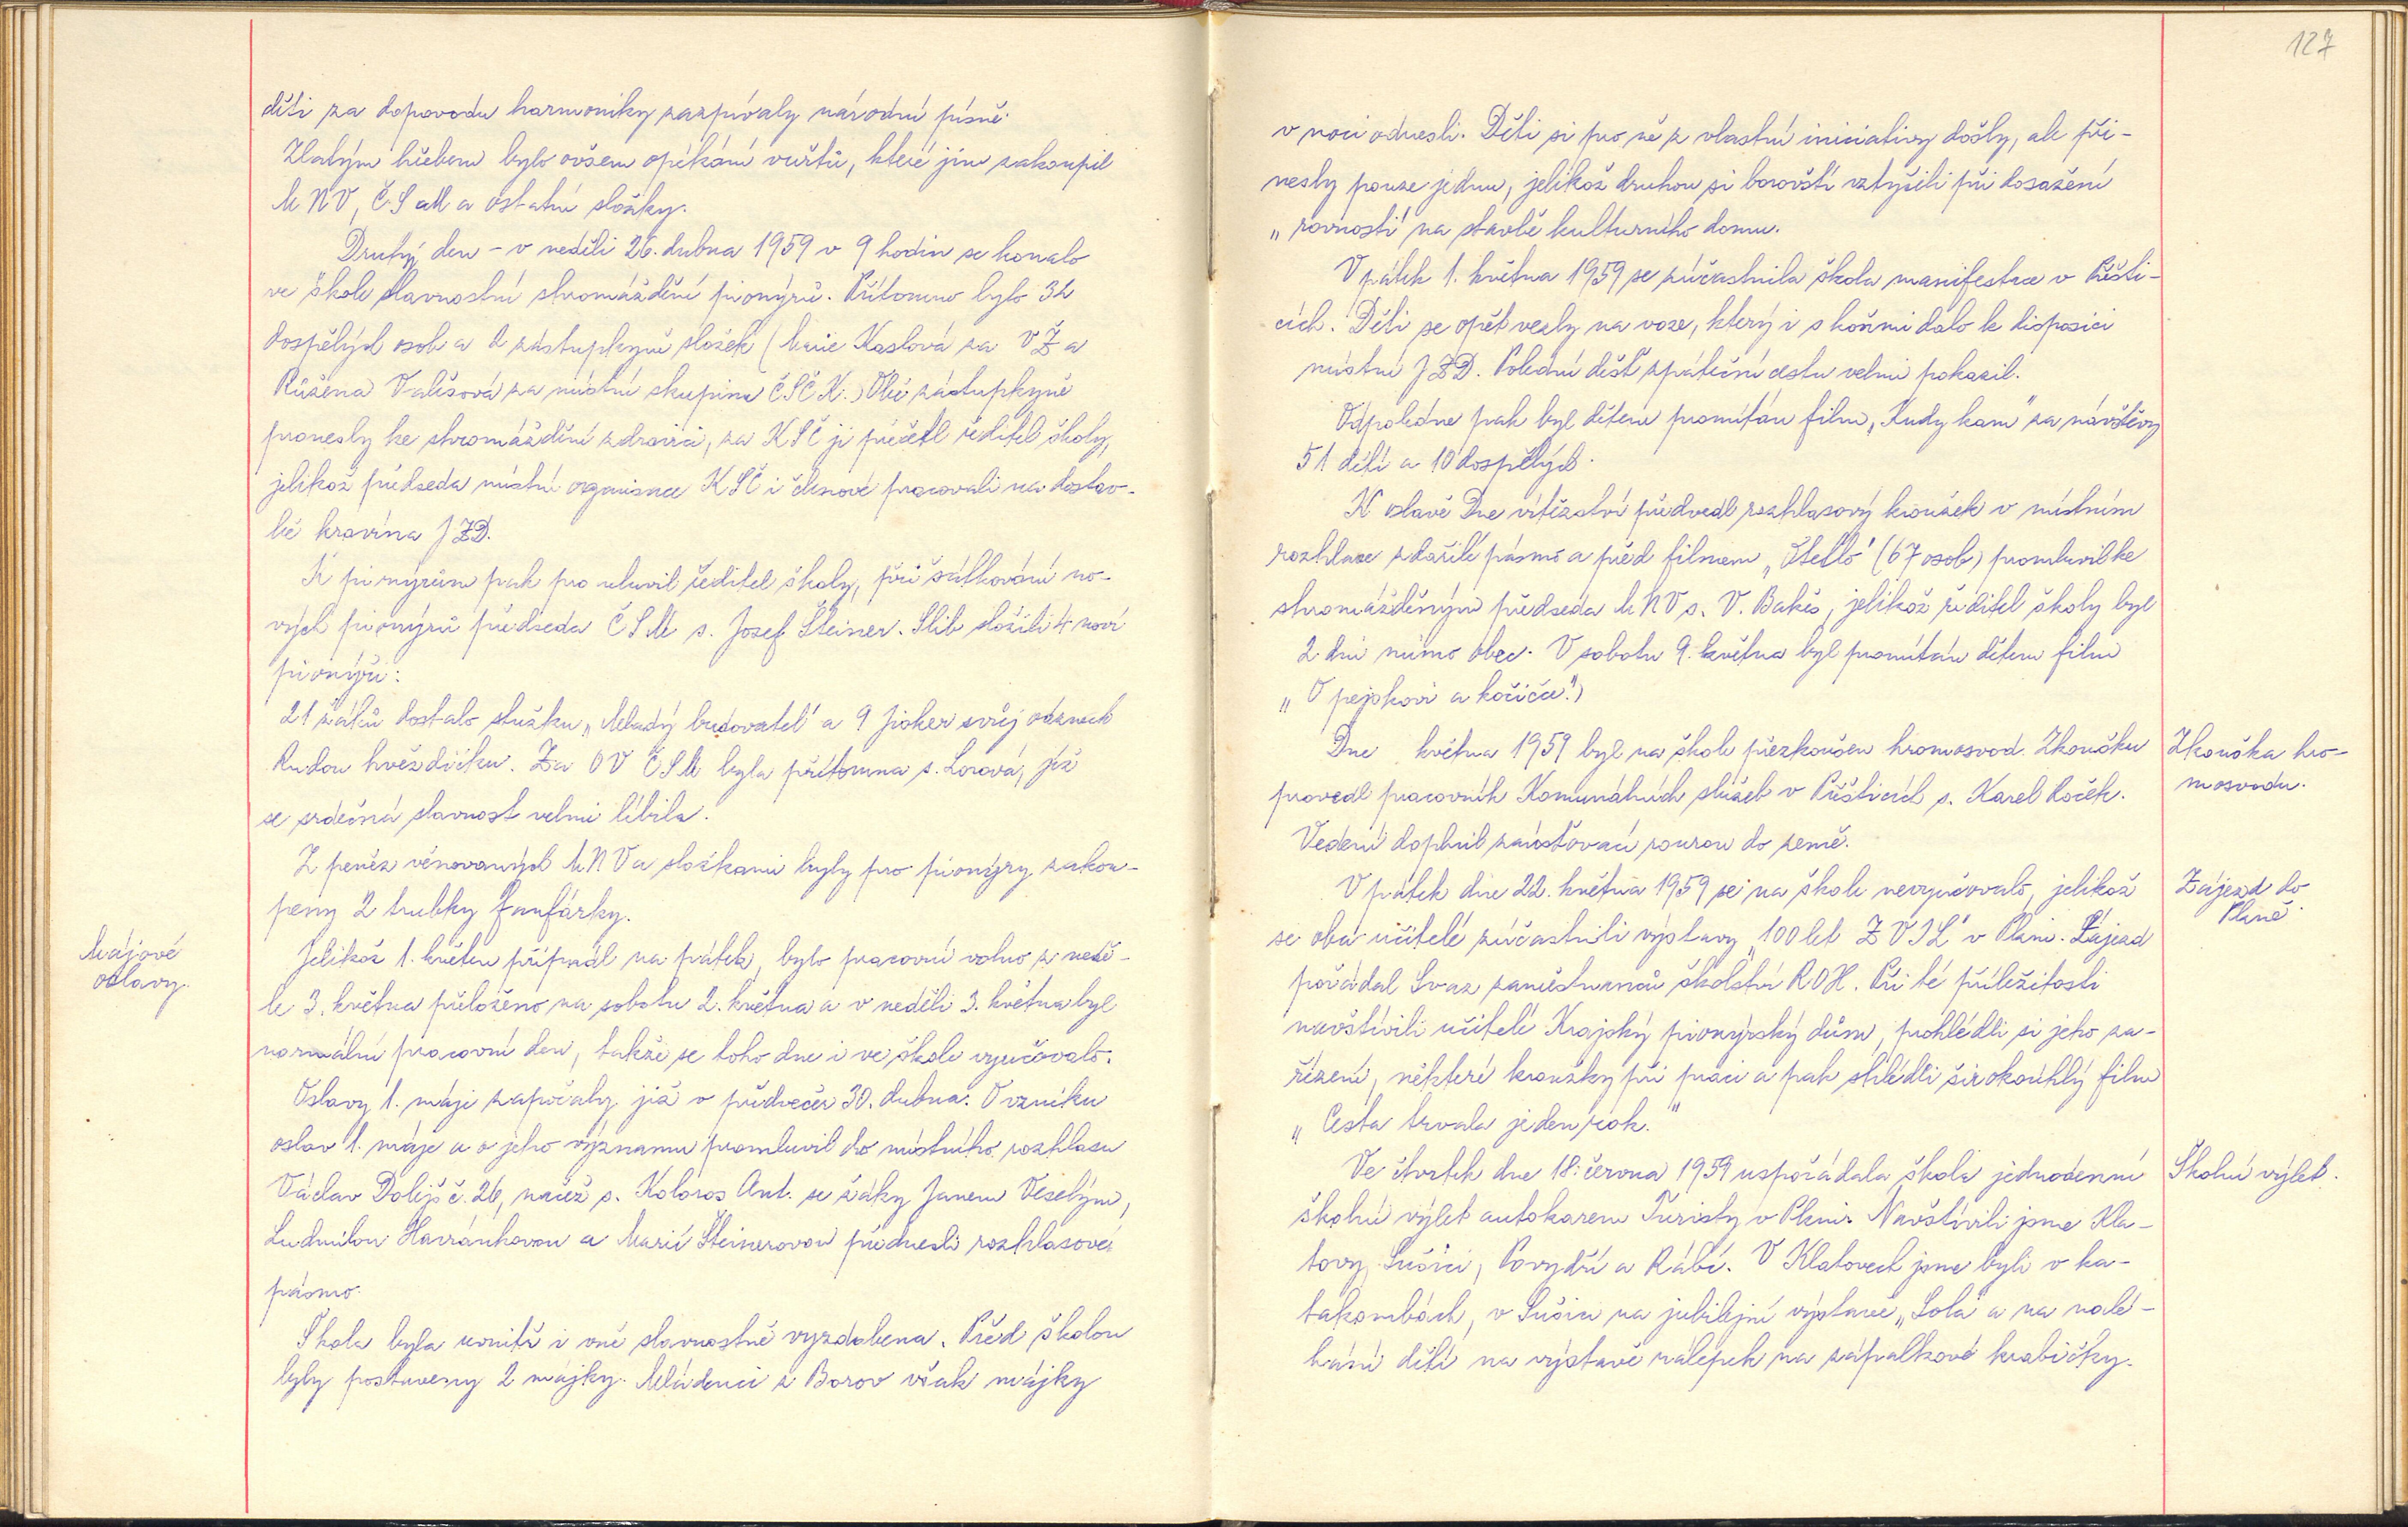 děti za doprovodu harmoniky zazpívaly národní písně.
Zlatým hřebem bylo ovšem opékání vuřtů, které jim zakoupil
MNV, ČSM a ostatní složky.
Druhý den - v neděli 26. dubna 1959 v 9 hodin se konalo
ve škole slavnostní shromáždění pionýrů. Přítomno bylo 32
dospělých osob a 2 zástupkyně složek (Marie Kaslová za VŽ a
Růžena Valešová za místní skupinu ČSČK.) Obě zástupkyně
pronesly ke shromáždění zdravici, za KSČ ji přečetl ředitel školy,
jelikož předseda místní organisace KSČ i členové pracovali na dostav-
bě kravína JZD.
K pionýrům pak promluvil ředitel školy, při šátkování no-
vých pionýrů předseda ČSM s. Josef Steiner. Slib složili 4 noví
pionýři:
21 žáků dostalo stužku „Mladý budovatel" a 9 jisker svůj odznak
Rudou hvězdičku. Za OV ČSM byla přítomna s. Lorová, jíž
se srdečná slavnost velmi líbila.
Z peněz věnovaných MNV a složkami byly pro pionýry zakou-
peny 2 trubky fanfárky.
Májové
oslavy.
Jelikož 1. květen připadl na pátek, bylo pracovní volno z nedě-
le 3. května přeloženo na sobotu 2. května a v neděli 3. května byl
normální pracovní den, takže se toho dne i ve škole vyučovalo.
Oslavy 1. máje započaly již v předvečer 30. dubna. O vzniku
oslav 1. máje a o jeho významu promluvil do místního rozhlasu
Václav Dolejš č. 26, načež s. Koloros Ant. se žáky Janem Veselým,
Ludmilou Havránkovou a Marií Steinerovou přednesli rozhlasové
pásmo.
Škola byla uvnitř i vně slavnostně vyzdobena. Před školou
byly postaveny 2 májky. Mládenci z Borov však májky
127
v noci odnesli. Děti si pro ně z vlastní iniciativy došly, ale při-
nesly pouze jednu, jelikož druhou si borovští vztyčili při dosažení
„rovnosti" na stavbě kulturního domu.
V pátek 1. května 1959 se zúčastnila škola manifestace v Přešti-
cích. Děti se opět vezly na voze, který i s koňmi dalo k disposici
místní JZD. Polední déšť zpáteční cestu velmi pokazil.
Odpoledne pak byl dětem promítán film „Kudy kam" za návštěvy
51 dětí a 10 dospělých.
K oslavě Dne vítězství předvedl rozhlasový kroužek v místním
rozhlase zdařilé pásmo a před filmem „Otello" (67 osob) promluvil ke
shromážděným předseda MNV s. V. Bakeš, jelikož ředitel školy byl
2 dni mimo obec. V sobotu 9. května byl promítán dětem film
„O pejskovi a kočičce".)
Dne května 1959 byl na škole přezkoušen hromosvod. Zkoušku
provedl pracovník Komunálních služeb v Přešticích s. Karel Roček.
Vedení doplnil zaúsťovací rourou do země.
Zkouška hro-
mosvodu.
V pátek dne 22. května 1959 se na škole nevyučovalo, jelikož
se oba učitelé zúčastnili výstavy „100 let ZVIL" v Plzni. Zájezd
pořádal Svaz zaměstnanců školství ROH. Při té příležitosti
navštívili učitelé Krajský pionýrský dům, prohlédli si jeho za-
řízení, některé kroužky při práci a pak shlédli širokoúhlý film
„Cesta trvala jeden rok."
Zájezd do
Plzně.
Ve čtvrtek dne 18. června 1959 uspořádala škola jednodenní
školní výlet autokarem Turisty v Plzni. Navštívili jsme Kla-
tovy, Sušici, Povydří a Rábí. V Klatovech jsme byli v ka-
takombách, v Sušici na jubilejní výstavě „Sola" a na nalé-
hání dětí na výstavě nálepek na zápalkové krabičky.
Školní výlet.